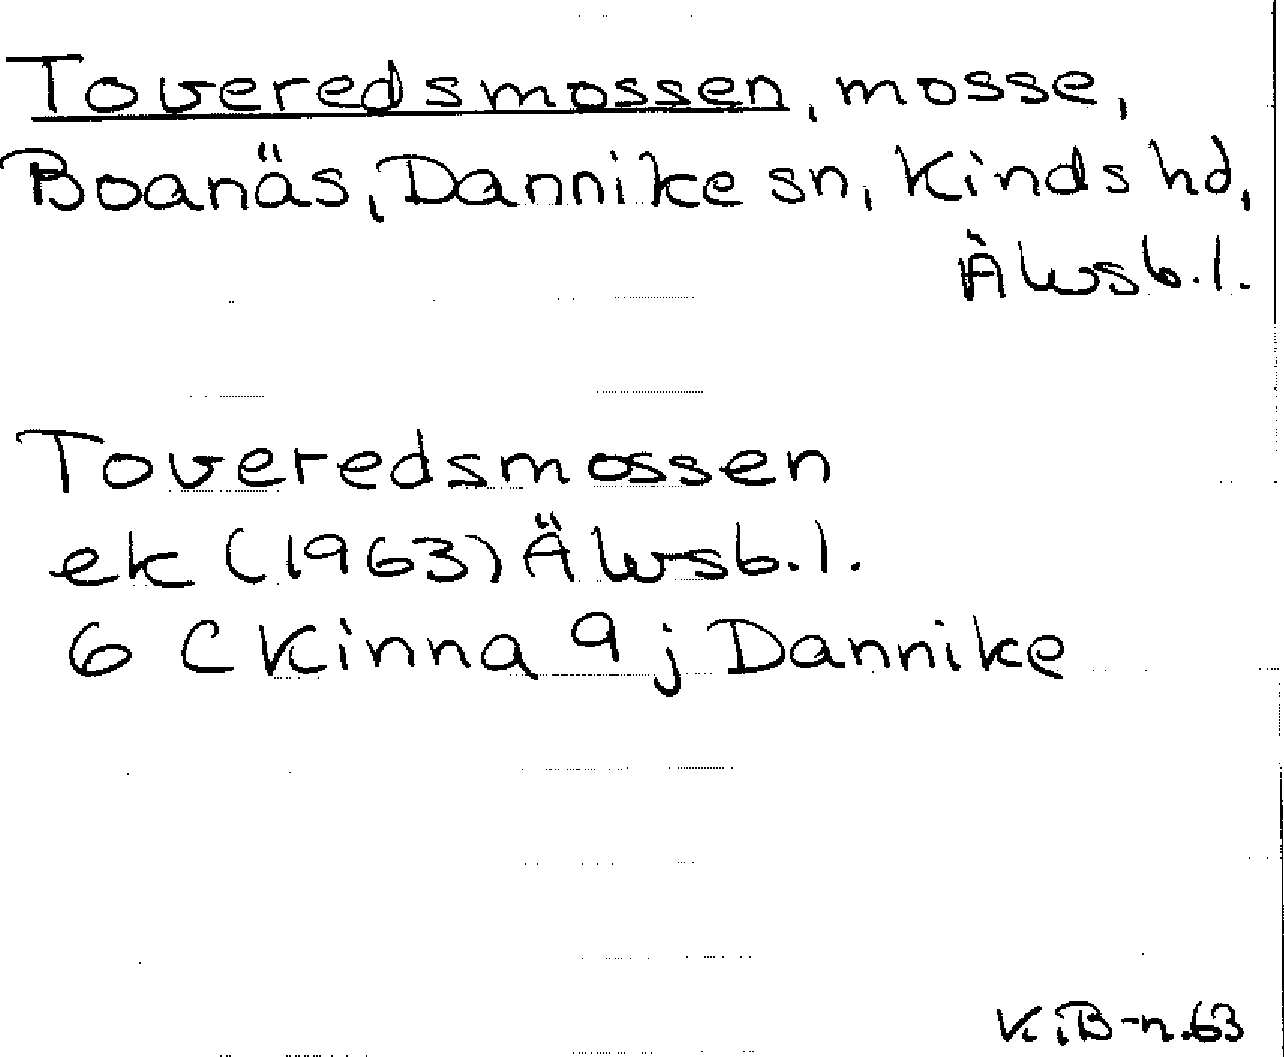 Toveredsmossen, mosse,
Boanäs, Dannike sn, Kinds hd,
Älvsb.l.
Toveredsmossen
ek (1963) Älvsb.l.
6 C Kinna 9 j Dannike
K.iB-n.63